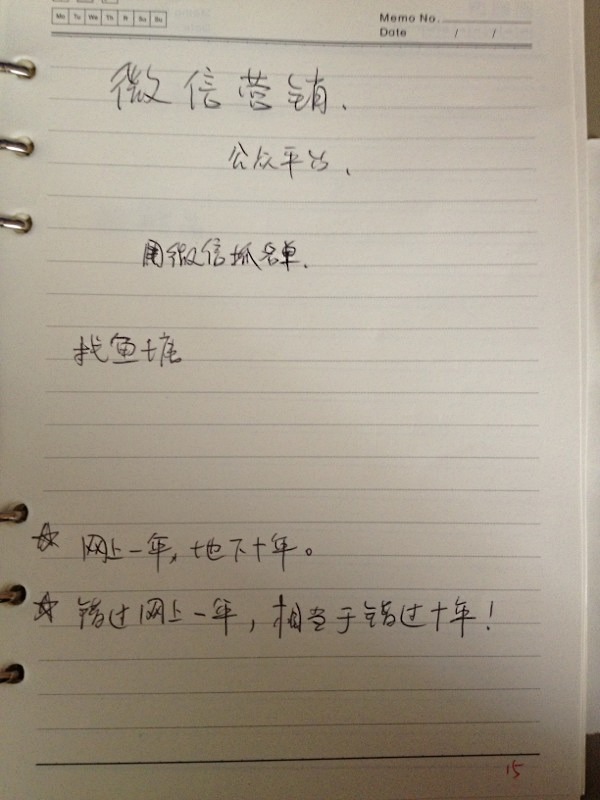 Mo Tu We Th Fr Sa Su
Memo No.
Date / /
微信营销.
公众平台.
用微信抓名单.
找鱼塘
☆ 网上一年,地下十年。
☆ 错过网上一年,相当于错过十年!
15